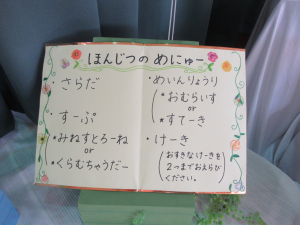 ほんじつの めにゅー
・さらだ
・すーぷ
・みねすとろーね
or
・くらむちゃうだー
・めいんりょうり
・おむらいす
or
・すてーき
・けーき
おすきなけーきを
2つまでおえらび
ください。